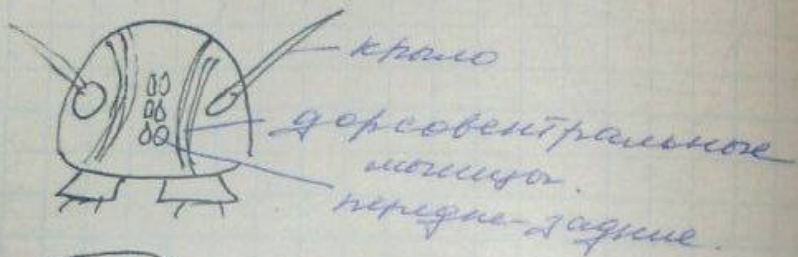 крыло
дорсовентральные
мышцы.
передне-задние.